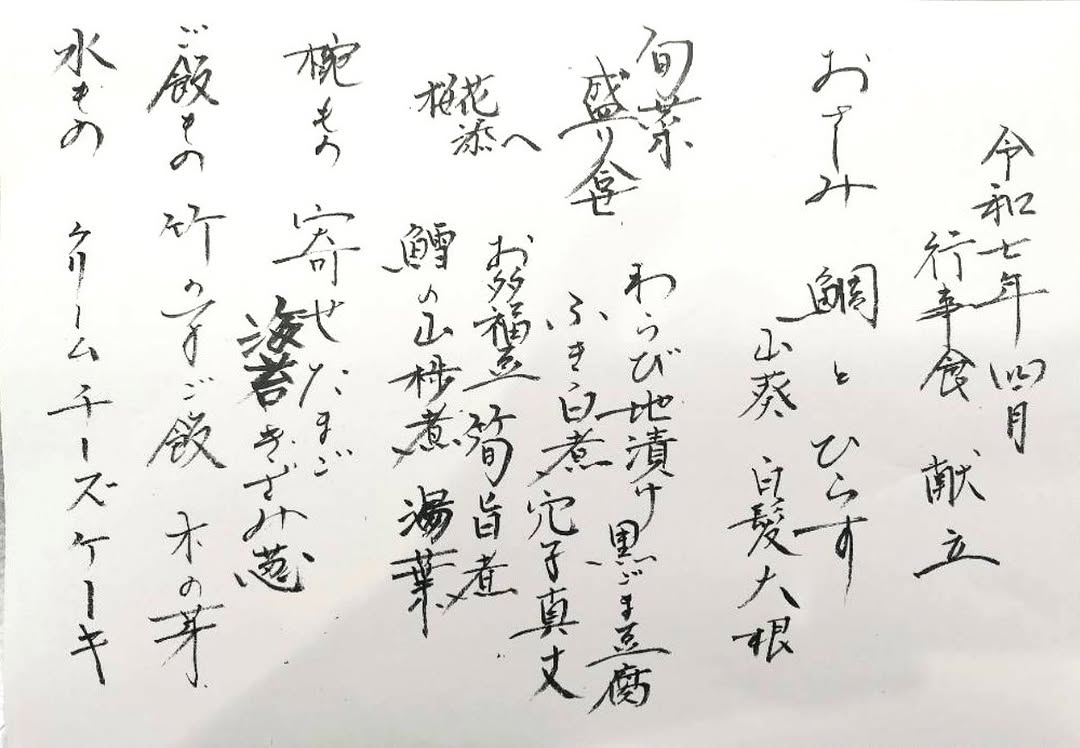 令和七年四月
行事食 献立
おさしみ 鯛とひらす
山葵 白髪大根
旬菜
盛り合せ
わらび地漬け 黒ごま豆腐
ふき白煮 穴子真丈
お多福豆 筍旨煮
桜花
添へ
鱈の山椒煮 湯葉
椀もの 寄せたまご
海苔 きざみ葱
ご飯もの 竹の子ご飯 木の芽
水もの クリームチーズケーキ